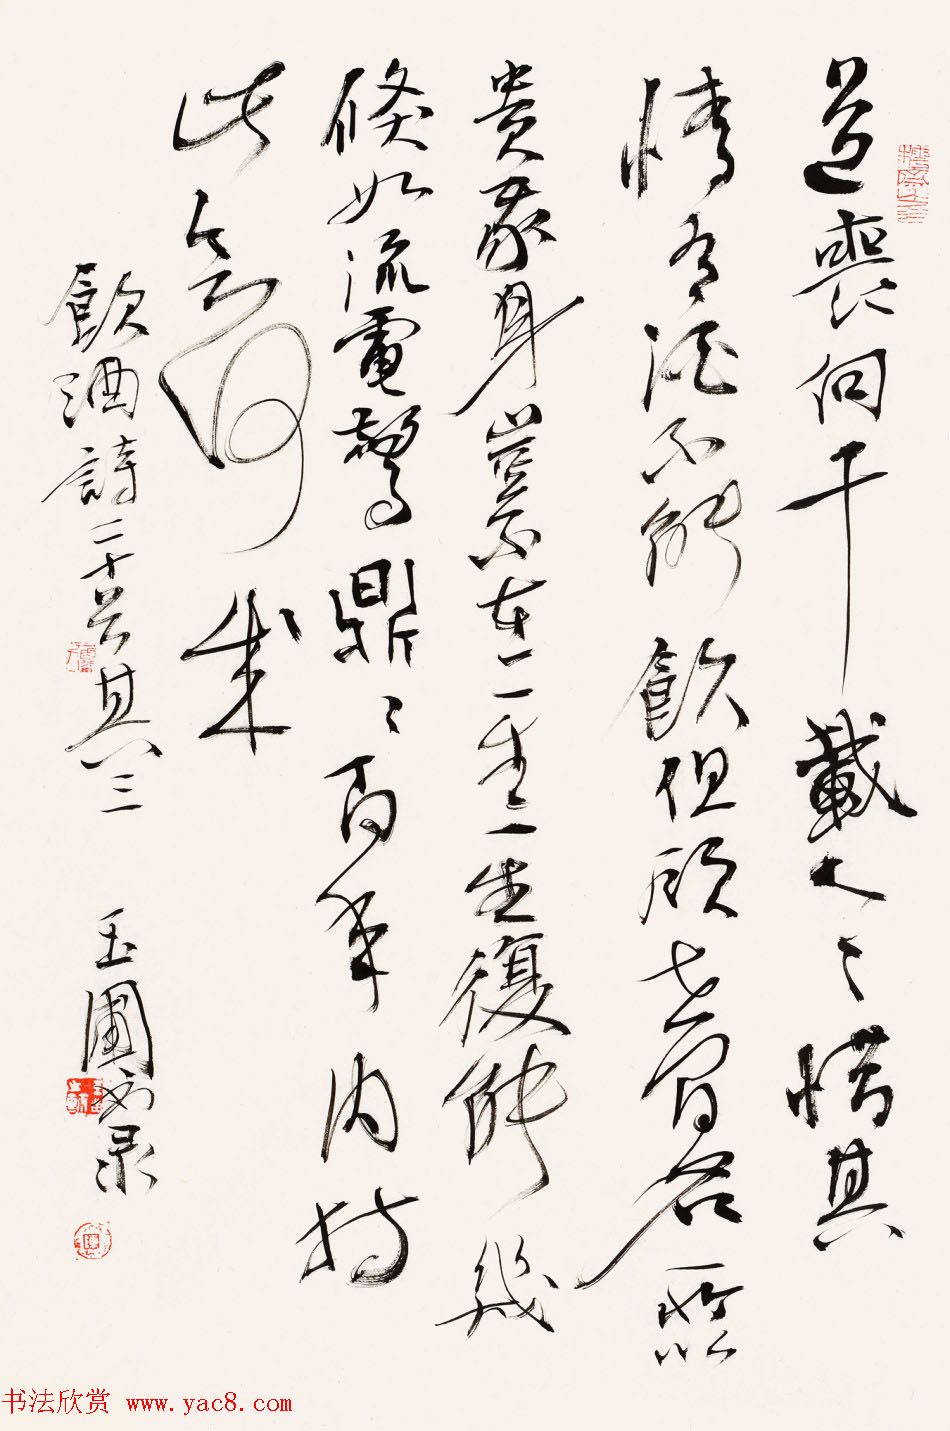 道喪向千載人〻惜其
情有酒不能飲但顧世間名所以
貴我身豈不在一生一生復能幾
倏如流電驚鼎〻百年內持
此欲何成
飲酒詩二十首其三 玉圃書录
书法欣赏 www.yac8.com